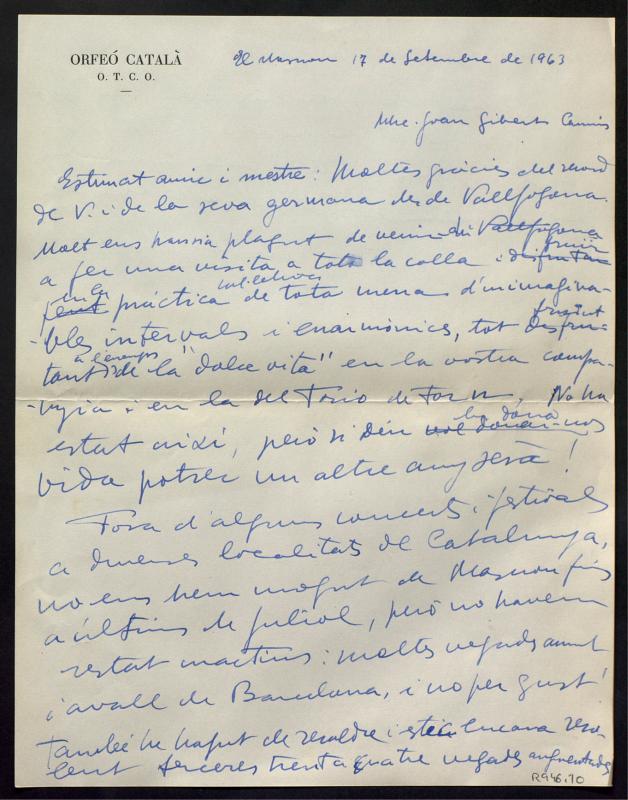 ORFEÓ CATALÀ
O. T. C. O.
El Masnou 17 de Setembre de 1963
Mtre. Joan Gibert Camins
Estimat amic i mestre: Moltes gràcies del record
de V. i de la seva germana des de Vallfogona.
Molt ens hauria plagut de venir di Vallfogona
a fer una visita a tota la colla i disfrutar
fruir
en la col·lectiva
fent pràctica de tota mena d'inimagina-
bles intervals i enarmònics, tot disfru-
fruint
tant de la "dolce vita" en la vostra compa-
a l'ensems
nyia i en la del Trio de Forn. No ha
estat així, però si Déu vol donar-nos
ens dóna
vida potser un altre any serà!
Fora d'alguns concerts i festivals
a diverses localitats de Catalunya,
no ens hem mogut de Masnou fins
a últims de juliol, però no havem
restat inactius: moltes vegades amunt
i avall de Barcelona, i no per gust!
També he hagut de resoldre i estic encara reso-
lent terceres trenta quatre vegades augmentades
R946.10